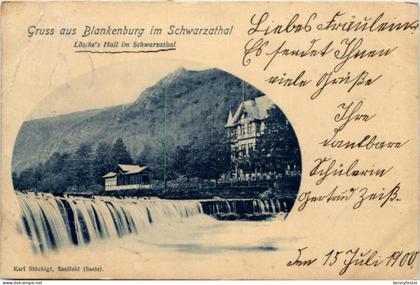 Gruss aus Blankenburg im Schwarzathal
Lösche's Hall im Schwarzathal
Liebes Fräulein
Es sendet Ihnen
viele Grüße
Ihre
dankbare
Schülerin
Gertrud Zeiß.
den 15 Juli 1900.
Karl Stöckigt, Saalfeld (Saale).
bennyfestal